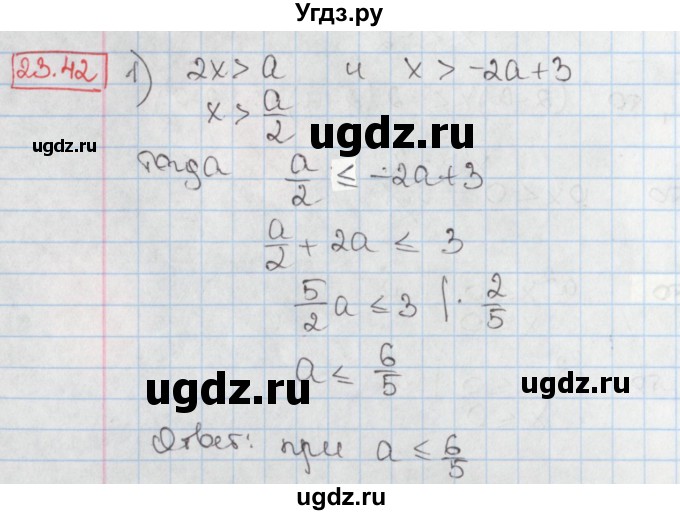 Угдз.ру
23.42 1) 2x > a и x > -2a+3
x > a/2
ugdz.ru
тогда a/2 ≤ -2a+3
a/2 + 2a ≤ 3
5/2 a ≤ 3 | · 2/5
a ≤ 6/5
ugdz.ru ugdz.ru
Ответ: при a ≤ 6/5
ugdz.ru